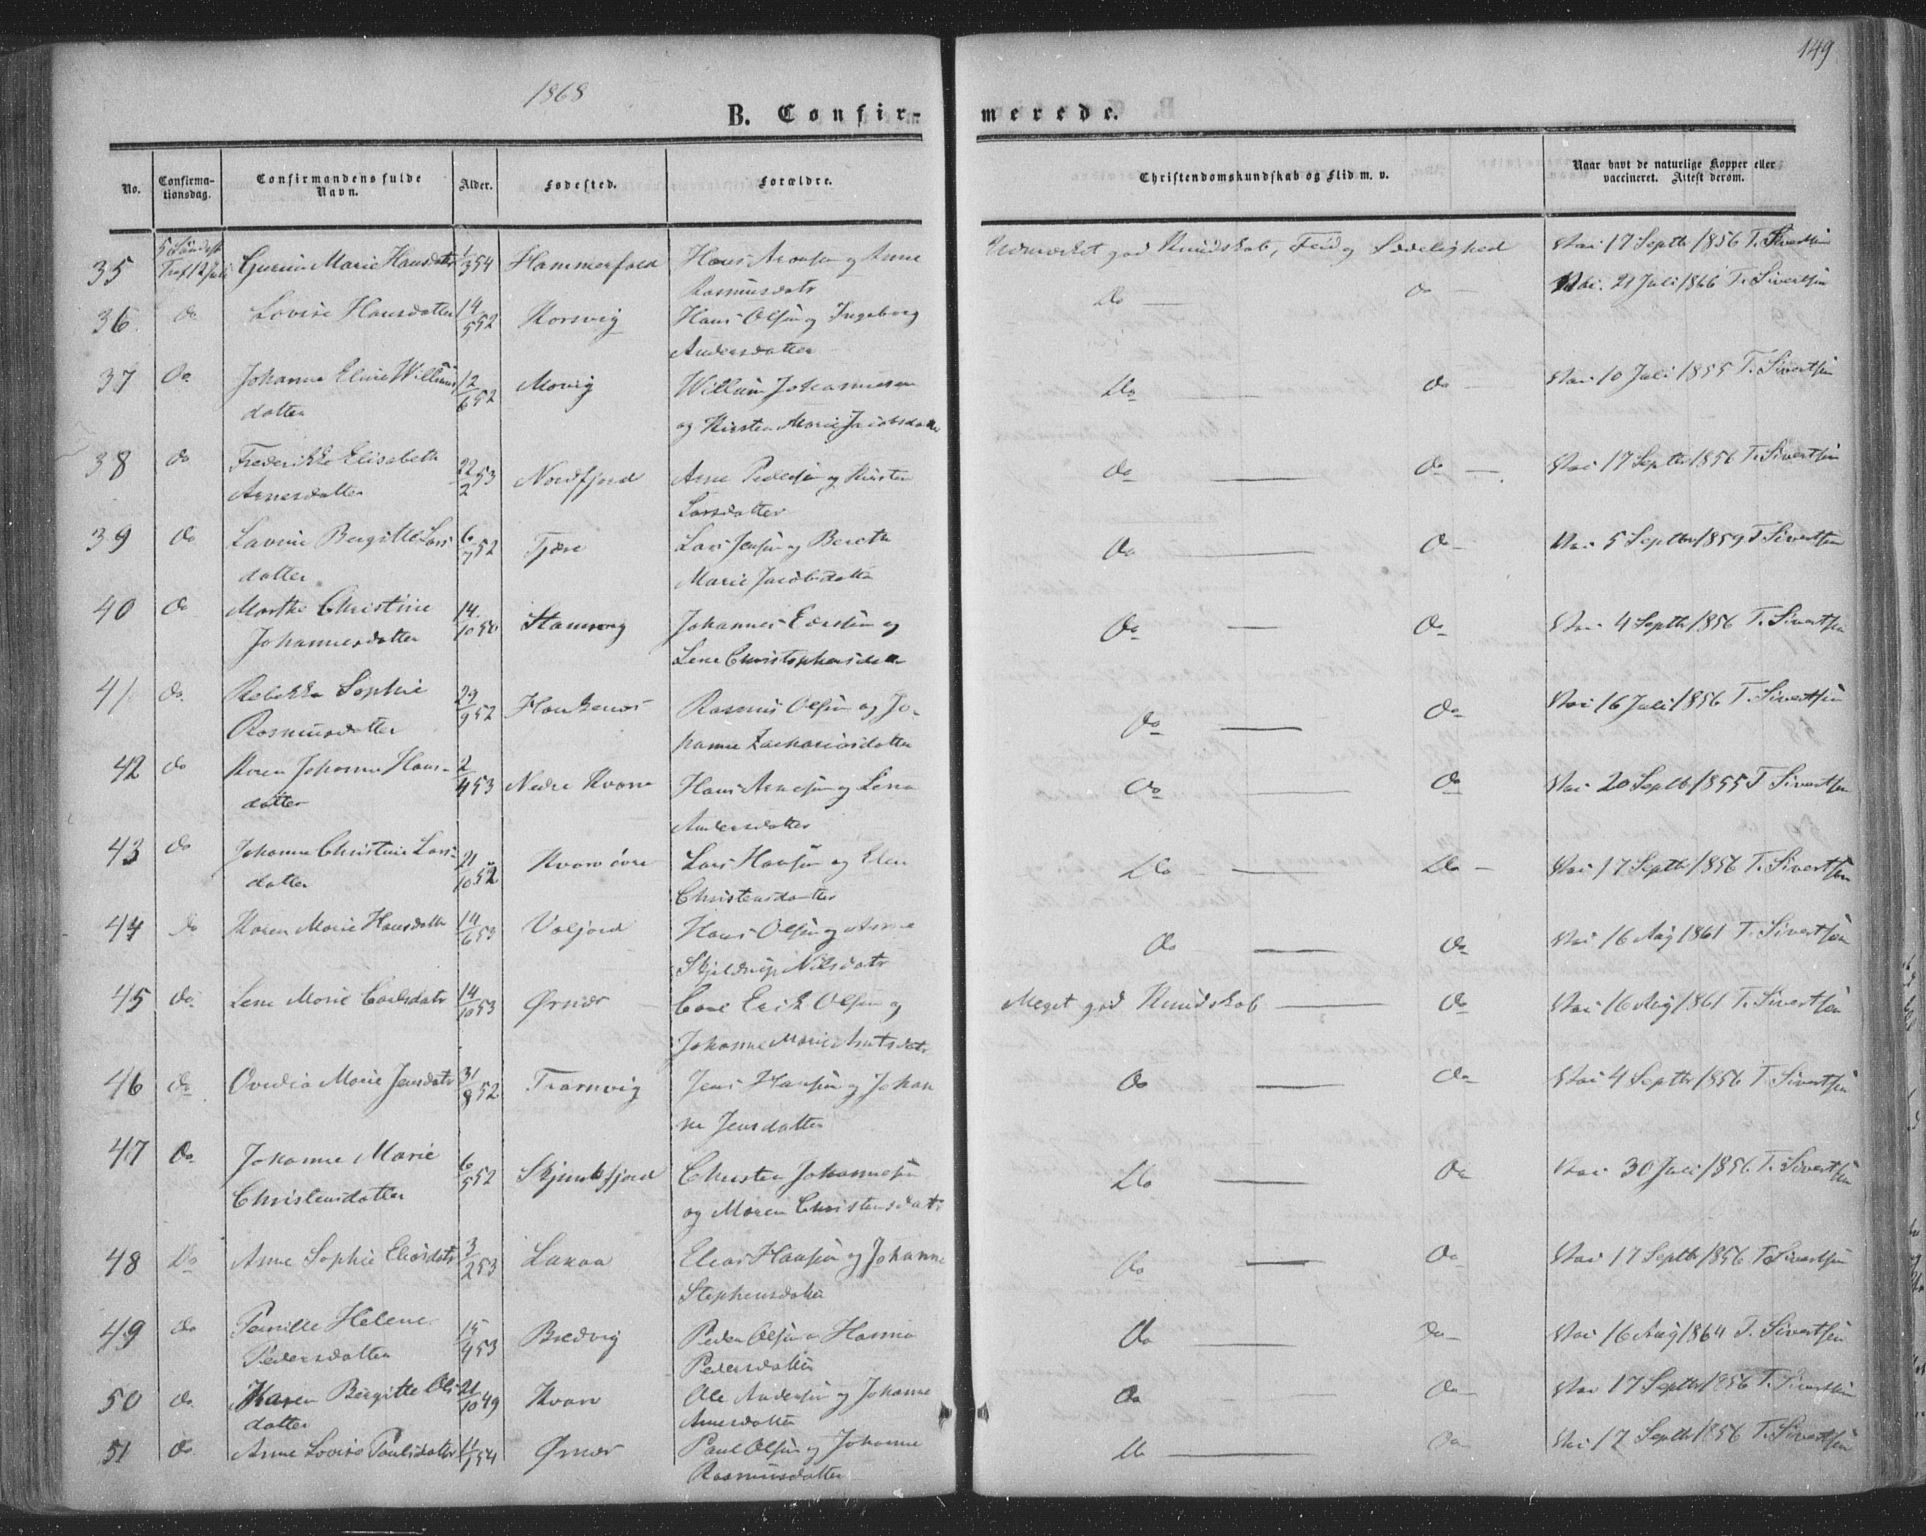 149
1868
B. Confir-merede.
No. Confirma-tionsdag. Confirmandens fulde Navn. Alder. Fødested. Forældre. Christendomskundskab og Flid m. v. Naar havt de naturlige Kopper eller vaccineret. Attest derom.
35 12 Juli Marie Hansdatr 54 Hammerfald Hans Aronsen og Anne Rasmusdatr Udmærket god Kundskab, Flid og Sædelighed Vac 17 Septbr 1856 T. Sivertsen
36 do Lovise Hansdatter 14/5 52 Korsvig Hans Olsen og Ingeborg Andersdatter Do — do — Vac. 21 Juli 1866 T. Sivertsen
37 Do Johanne Eline Willums datter 12/6 52 Movig Johannesen og Kirsten Marie Jacobsdatter Do — do — Vac 10 Juli 1855 T. Sivertsen
38 do Frederikke Elisabeth Arnesdatter 22/2 53 Nordfjord Arne Pedersen og Kirsten Larsdatter do — do — Vac 17 Septbr 1856 T. Sivertsen
39 do Lavine Bergitte Lars datter 6/7 52 Tjære Lars Jensen og Bereth Marie Jacobsdatter do do — Vac 5 Septbr 1859 T Sivertsen
40 do Marthe Christine Johannesdatter 14/10 50 Stamsvig Johannes og Lene Christophersdatter do — do Vac 4 Septbr 1856 T. Sivertsen
41 do Rebekka Sophie Rasmusdatter 29/9 52 Haukenæs Rasmus Olsen og Jo-hanne Zachariasdatter do — do Vac 16 Juli 1856 T. Sivertsen
42 do Karen Johanne Hans-datter 2/4 53 Nedre Kvarv Hans Arnesen og Lena Andersdatter do — do Vac 20 Septb 1855 T Sivertsen
43 do Johanne Christine Lars-datter 21/10 52 Kvarv øvre Lars Hansen og Elen Christensdatter Do — Do — Vac 17 Septbr 1856 T. Sivertsen
44 do Karen Marie Hansdatter 14/6 53 Valjord Hans Olsen og Anne Skjeldrup Nilsdatr do — do Vac 16 Aug 1861 T. Sivertsen
45 do Lene Marie Carlsdatr 14/10 53 Ørnær Carl Erik Olsen og Johanne Marie Knutsdatr Meget god Kundskab — do Vac 16 Aug 1861 T. Sivertsen
46 do Ovedia Marie Jensdatr 31/8 52 Tramvig Jens Hansen og Johan ne Jensdatter do — do Vac 4 Septbr 1856 T. Sivertsen
47 do Johanne Marie Christensdatter 6/5 52 Christen Johannesen og Maren Christensdatr Do — do Vac 30 Juli 1856 T. Sivertsen
48 Do Anne Sophie Eliasdatr 3/2 53 Laxaa Elias Hansen og Johanne Stephensdatter do — do Vac 17 Septbr 1856 T. Sivertsen
49 do Pernille Helene Pedersdatter 15/4 53 Bredvig Peder Olsen Hanna Pedersdatter do do — Vac 16 Aug 1864 T. Sivertsen
50 do Karen Bergitte Ols datter 21/10 49 Kvarv Ole Andersen og Johanne Arnesdatter do do — Vac 17 Septbr 1856 T. Sivertsen
51 do Anne Lovise Paulsdatter 54 Ørnær Paul Olsen og Johanne Rasmusdatter Do do — Vac 17 Septbr 1856 T. Sivertsen